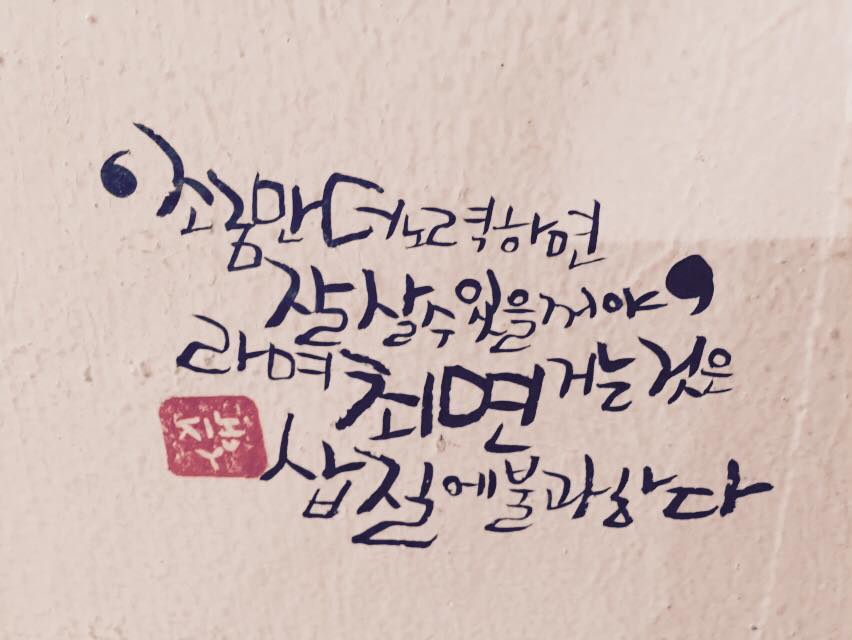 ‘조금만더노력하면
잘살수있을거야’
라며최면거는것은
삽질에불과하다